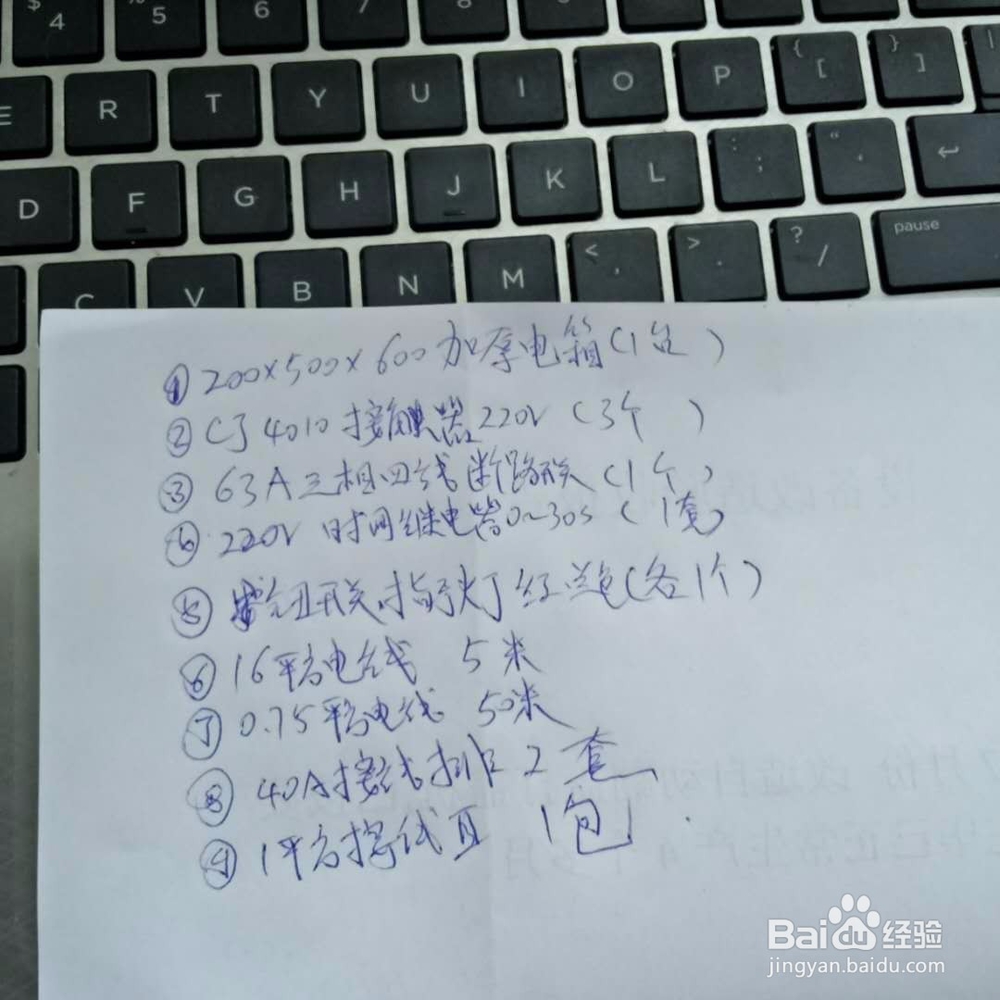 $ 4 % 5 6 7 8
E R T Y U I O P { [ } ]
D F G H J K L : ; " '
C V B N M < , > . ? / pause
① 200×500×600加厚电箱(1台)
② CJ4010接触器220V(3个)
③ 63A三相四线断路器(1个)
④ 220V时间继电器0~30S(1套)
⑤ 按钮开关 指示灯 红 (各1个)
⑥ 16平方电线 5米
⑦ 0.75平方电线 50米
⑧ 40A接线排 2套
⑨ 1平方接线耳 1包
Baidu经验
jingyan.baidu.com